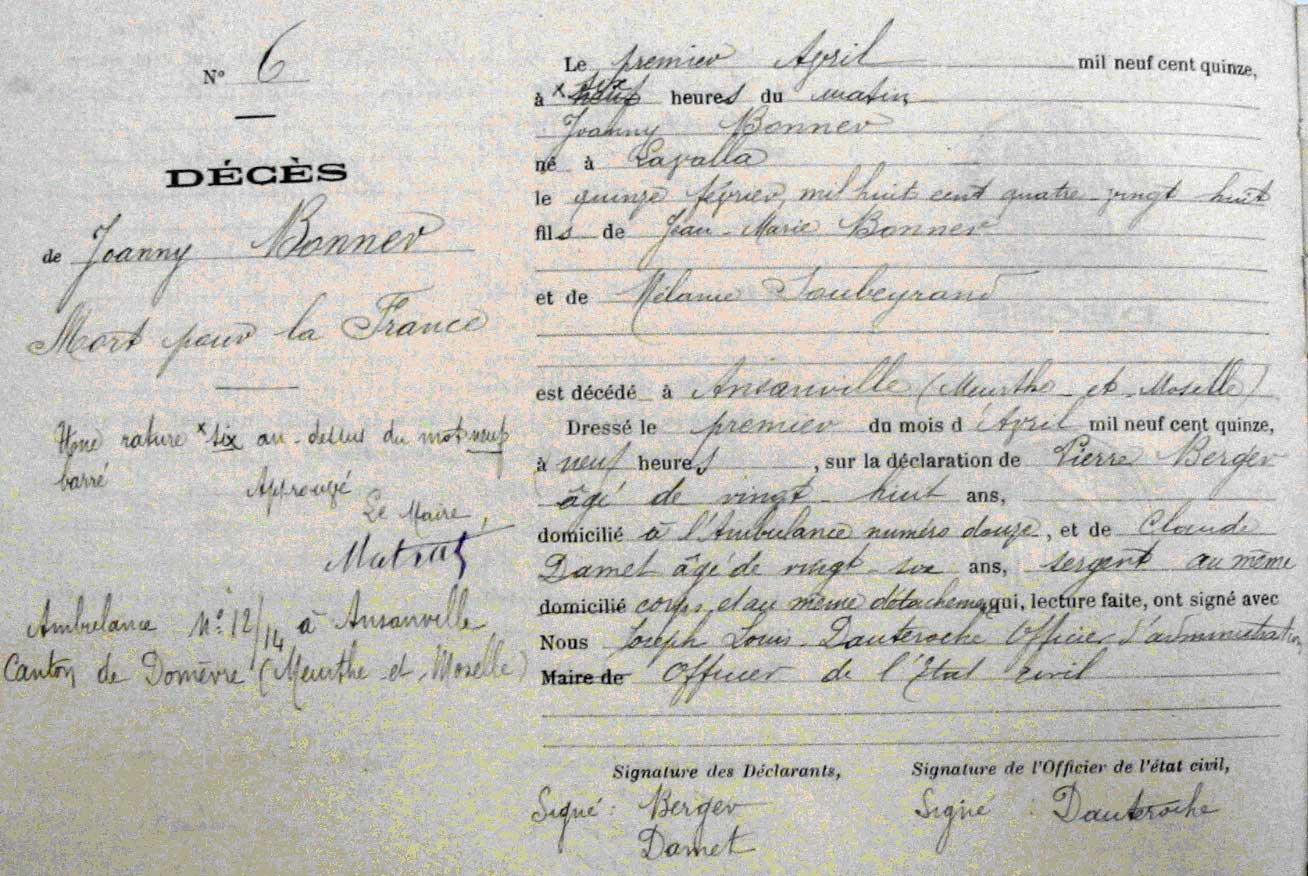 N° 6
DÉCÈS
de Joanny Bonner
Mort pour la France
Une rature x six au-dessus du mot neuf
barré
Approuvé
Le Maire,
Matrat
Ambulance N° 12/14 à Ansanville
Canton de Domèvre (Meurthe-et-Moselle)
Le premier Avril mil neuf cent quinze,
à x six neuf heures du matin
Joanny Bonner
né à Lavalla
le quinze février mil huit cent quatre-vingt huit
fils de Jean-Marie Bonner
et de Mélanie Soubeyrand
est décédé à Ansanville (Meurthe-et-Moselle)
Dressé le premier du mois d'Avril mil neuf cent quinze,
à neuf heures, sur la déclaration de Pierre Berger
âgé de vingt-huit ans,
domicilié à l'Ambulance numéro douze, et de Claude
Damet âgé de vingt-six ans, sergent au même
domicilié corps, et au même détachement, qui, lecture faite, ont signé avec
Nous Joseph Louis Dauteroche Officier d'administration
Maire de Officier de l'Etat civil
Signature des Déclarants,
Signé: Berger
Damet
Signature de l'Officier de l'état civil,
Signé: Dauteroche